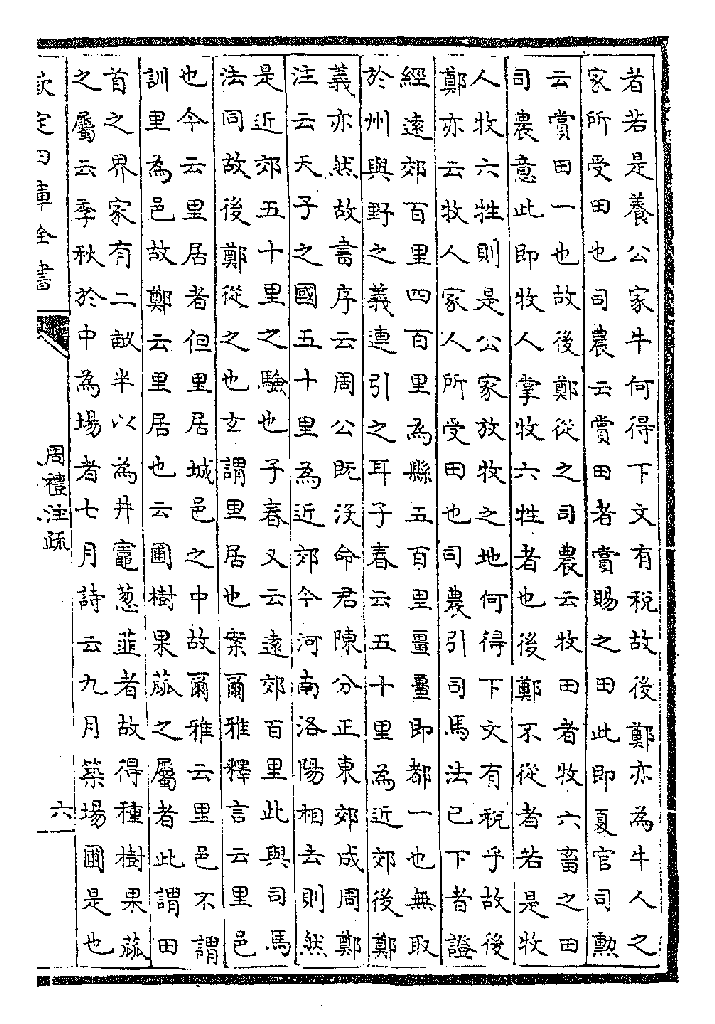 者若是養公家牛何得下文有税故後鄭亦為牛人之
家所受田也司農云賞田者賞賜之田此即夏官司勲
云賞田一也故後鄭從之司農云牧田者牧六畜之田
司農意此即牧人掌牧六牲者也後鄭不從者若是牧
人牧六牲則是公家放牧之地何得下文有税乎故後
鄭亦云牧人家人所受田也司農引司馬法已下者證
經遠郊百里四百里為縣五百里畺畺即都一也無取
於州與野之義連引之耳子春云五十里為近郊後鄭
義亦然故書序云周公既没命君陳分正東郊成周鄭
注云天子之國五十里為近郊今河南洛陽相去則然
是近郊五十里之驗也子春又云遠郊百里此與司馬
法同故後鄭從之也玄謂里居也案爾雅釋言云里邑
也今云里居者但里居城邑之中故爾雅云里邑不謂
訓里為邑故鄭云里居也云圃樹果蓏之屬者此謂田
首之界家有二畝半以為井竈葱韮者故得種樹果蓏
之屬云季秋於中為場者七月詩云九月築場圃是也
欽定四庫全書
周禮注疏
六